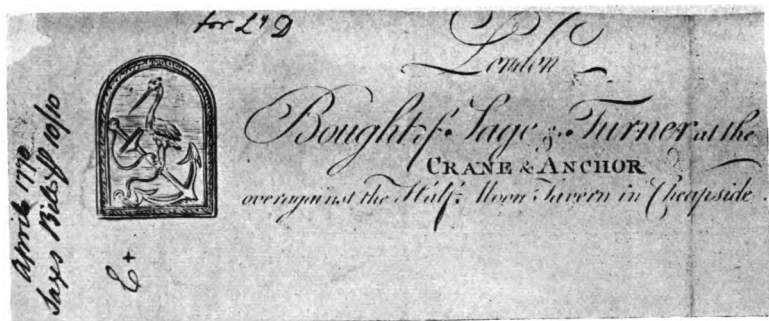 for Ly D
London
Bought of Sage & Turner at the
CRANE & ANCHOR
over against the Half Moon Tavern in Cheapside
April 1770
Sages Bill
10/10